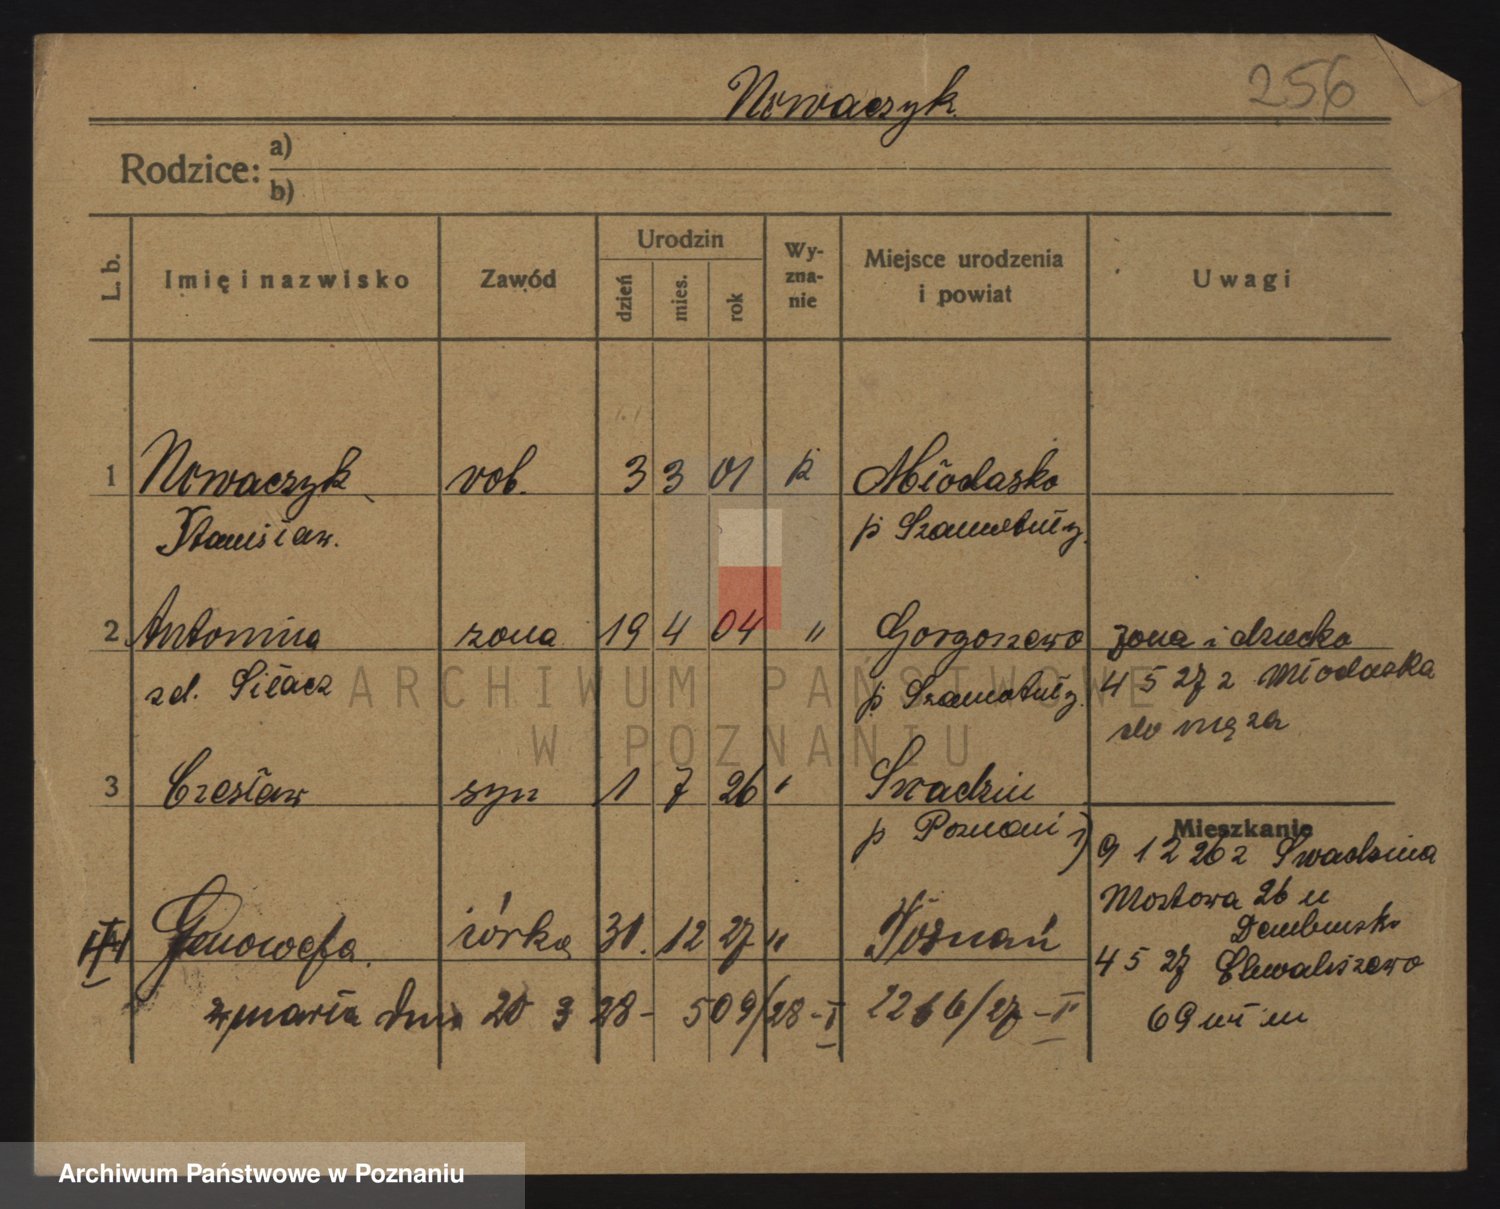 Nowaczyk
256
Rodzice: a)
b)
L. b. Imię i nazwisko Zawód Urodzin dzień mies. rok Wy-zna-nie Miejsce urodzenia i powiat Uwagi
1 Nowaczyk rob. 3 3 01 k Młodasko
Stanisław. p Szamotuły
2 Antonina żona 19 4 04 " Gorgoszewo żona i dziecko
zd. Siłacz p. Szamotuły 4 5 27 z Młodaska
do męża
3 Czesław syn 1 7 26 " Swadzim
p Poznań
Mieszkanie
9 12 26 z Swadzima
Mostowa 26 u
4 Genowefa córka 31. 12 27 " Poznań
4 5 27 Chwaliszewo
69 wł m
zmarła dnia 20 3 28 - 509/28 - I 2266/27 - II
ARCHIWUM PAŃSTWOWE
W POZNANIU
Archiwum Państwowe w Poznaniu